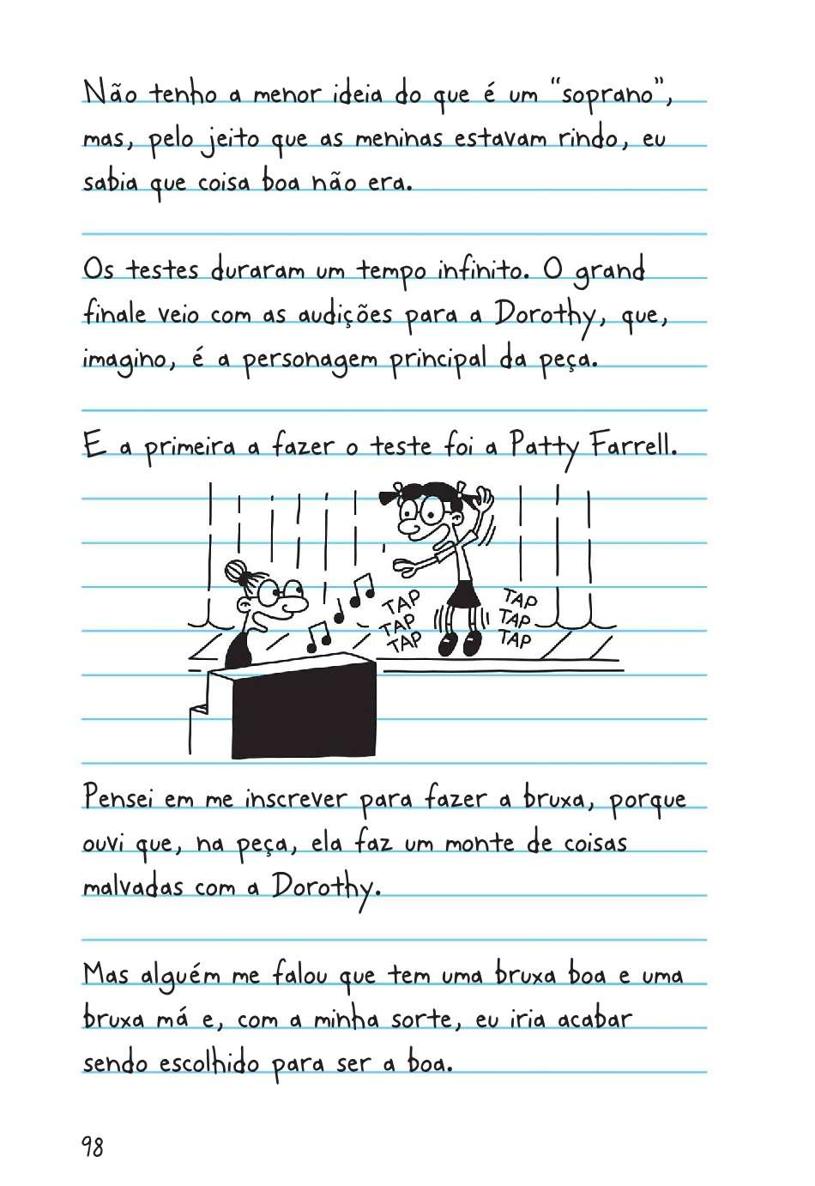 Não tenho a menor ideia do que é um “soprano”,
mas, pelo jeito que as meninas estavam rindo, eu
sabia que coisa boa não era.
Os testes duraram um tempo infinito. O grand
finale veio com as audições para a Dorothy, que,
imagino, é a personagem principal da peça.
E a primeira a fazer o teste foi a Patty Farrell.
TAP
TAP
TAP
TAP
TAP
TAP
Pensei em me inscrever para fazer a bruxa, porque
ouvi que, na peça, ela faz um monte de coisas
malvadas com a Dorothy.
Mas alguém me falou que tem uma bruxa boa e uma
bruxa má e, com a minha sorte, eu iria acabar
sendo escolhido para ser a boa.
98